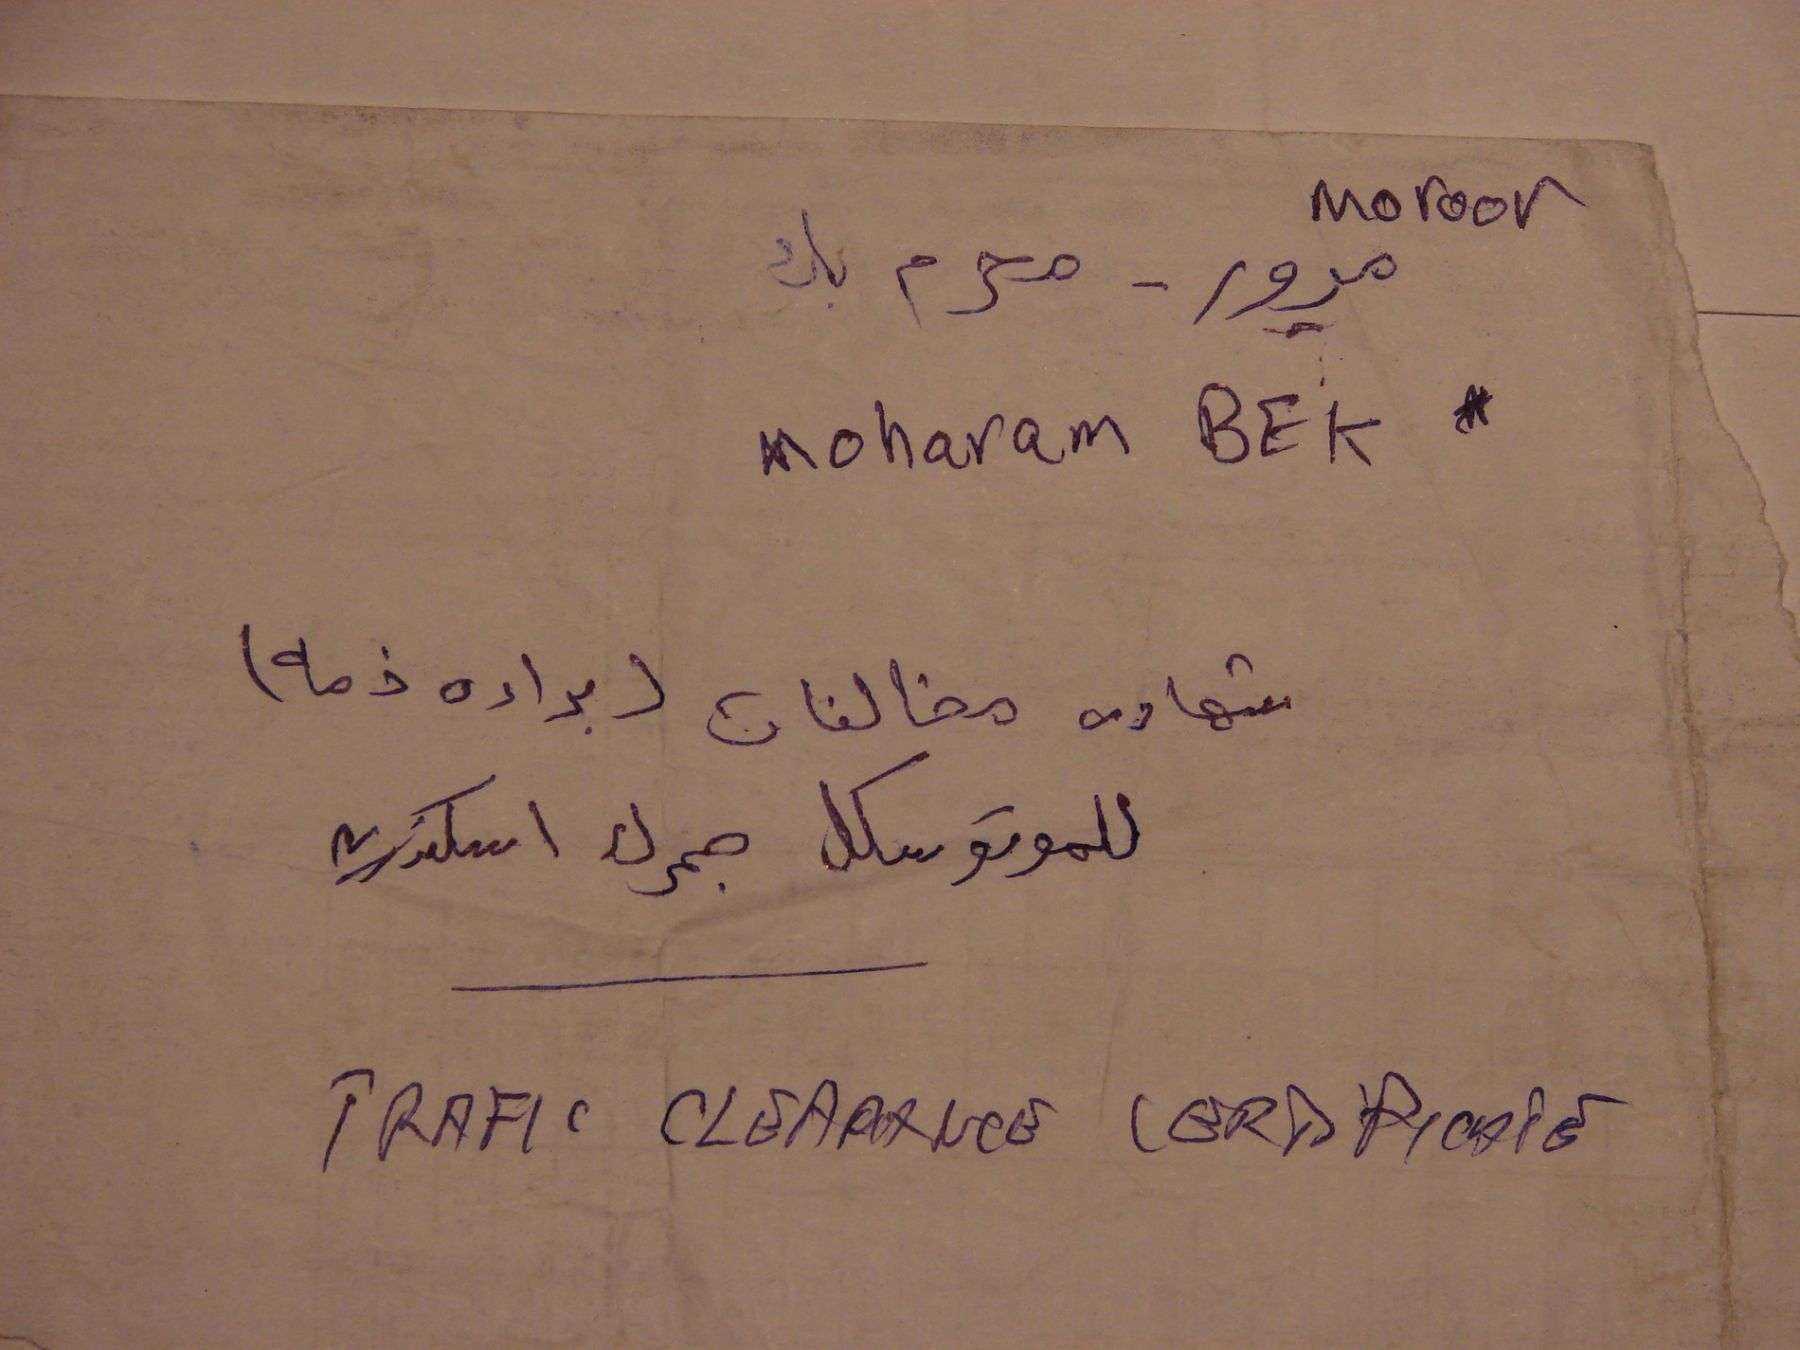 Moroor
مرور - محرم بك
moharam BEK *
شهاده مخالفات (براءه ذمه)
للموتوسكل جمرك اسكندريه
TRAFIC CLEARANCE CERTIFICATE